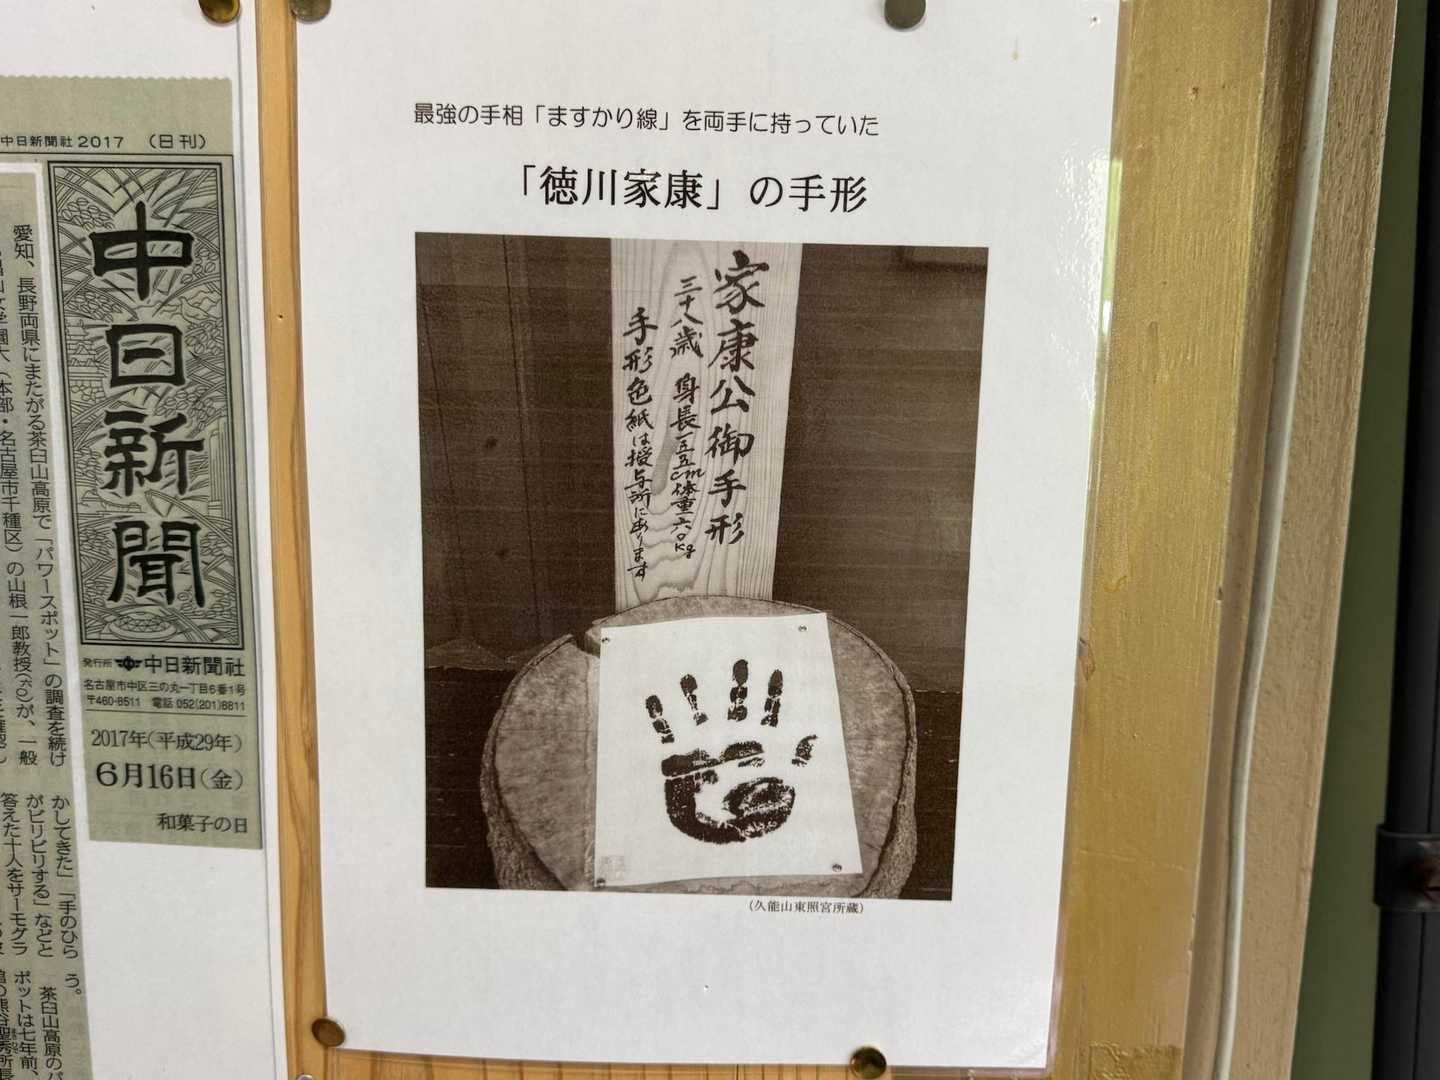 最強の手相「ますかり線」を両手に持っていた
「徳川家康」の手形
家康公御手形
三十八歳 身長一五五cm体重六〇kg
手形色紙は授与所にあります
(久能山東照宮所蔵)
中日新聞社2017 (日刊)
中日新聞
発行所 中日新聞社
名古屋市中区三の丸一丁目6番1号
〒460-8511 電話 052(201)8811
2017年(平成29年)
6月16日(金)
和菓子の日
愛知、長野両県にまたがる茶臼山高原で「パワースポット」の調査を続け
(本部・名古屋市千種区)の山根一郎教授が、一般
かしてきた」「手のひら
がビリビリする」などと
答えた十人をサーモグラ
う。
茶臼山高原のパ
ポットは七年前、